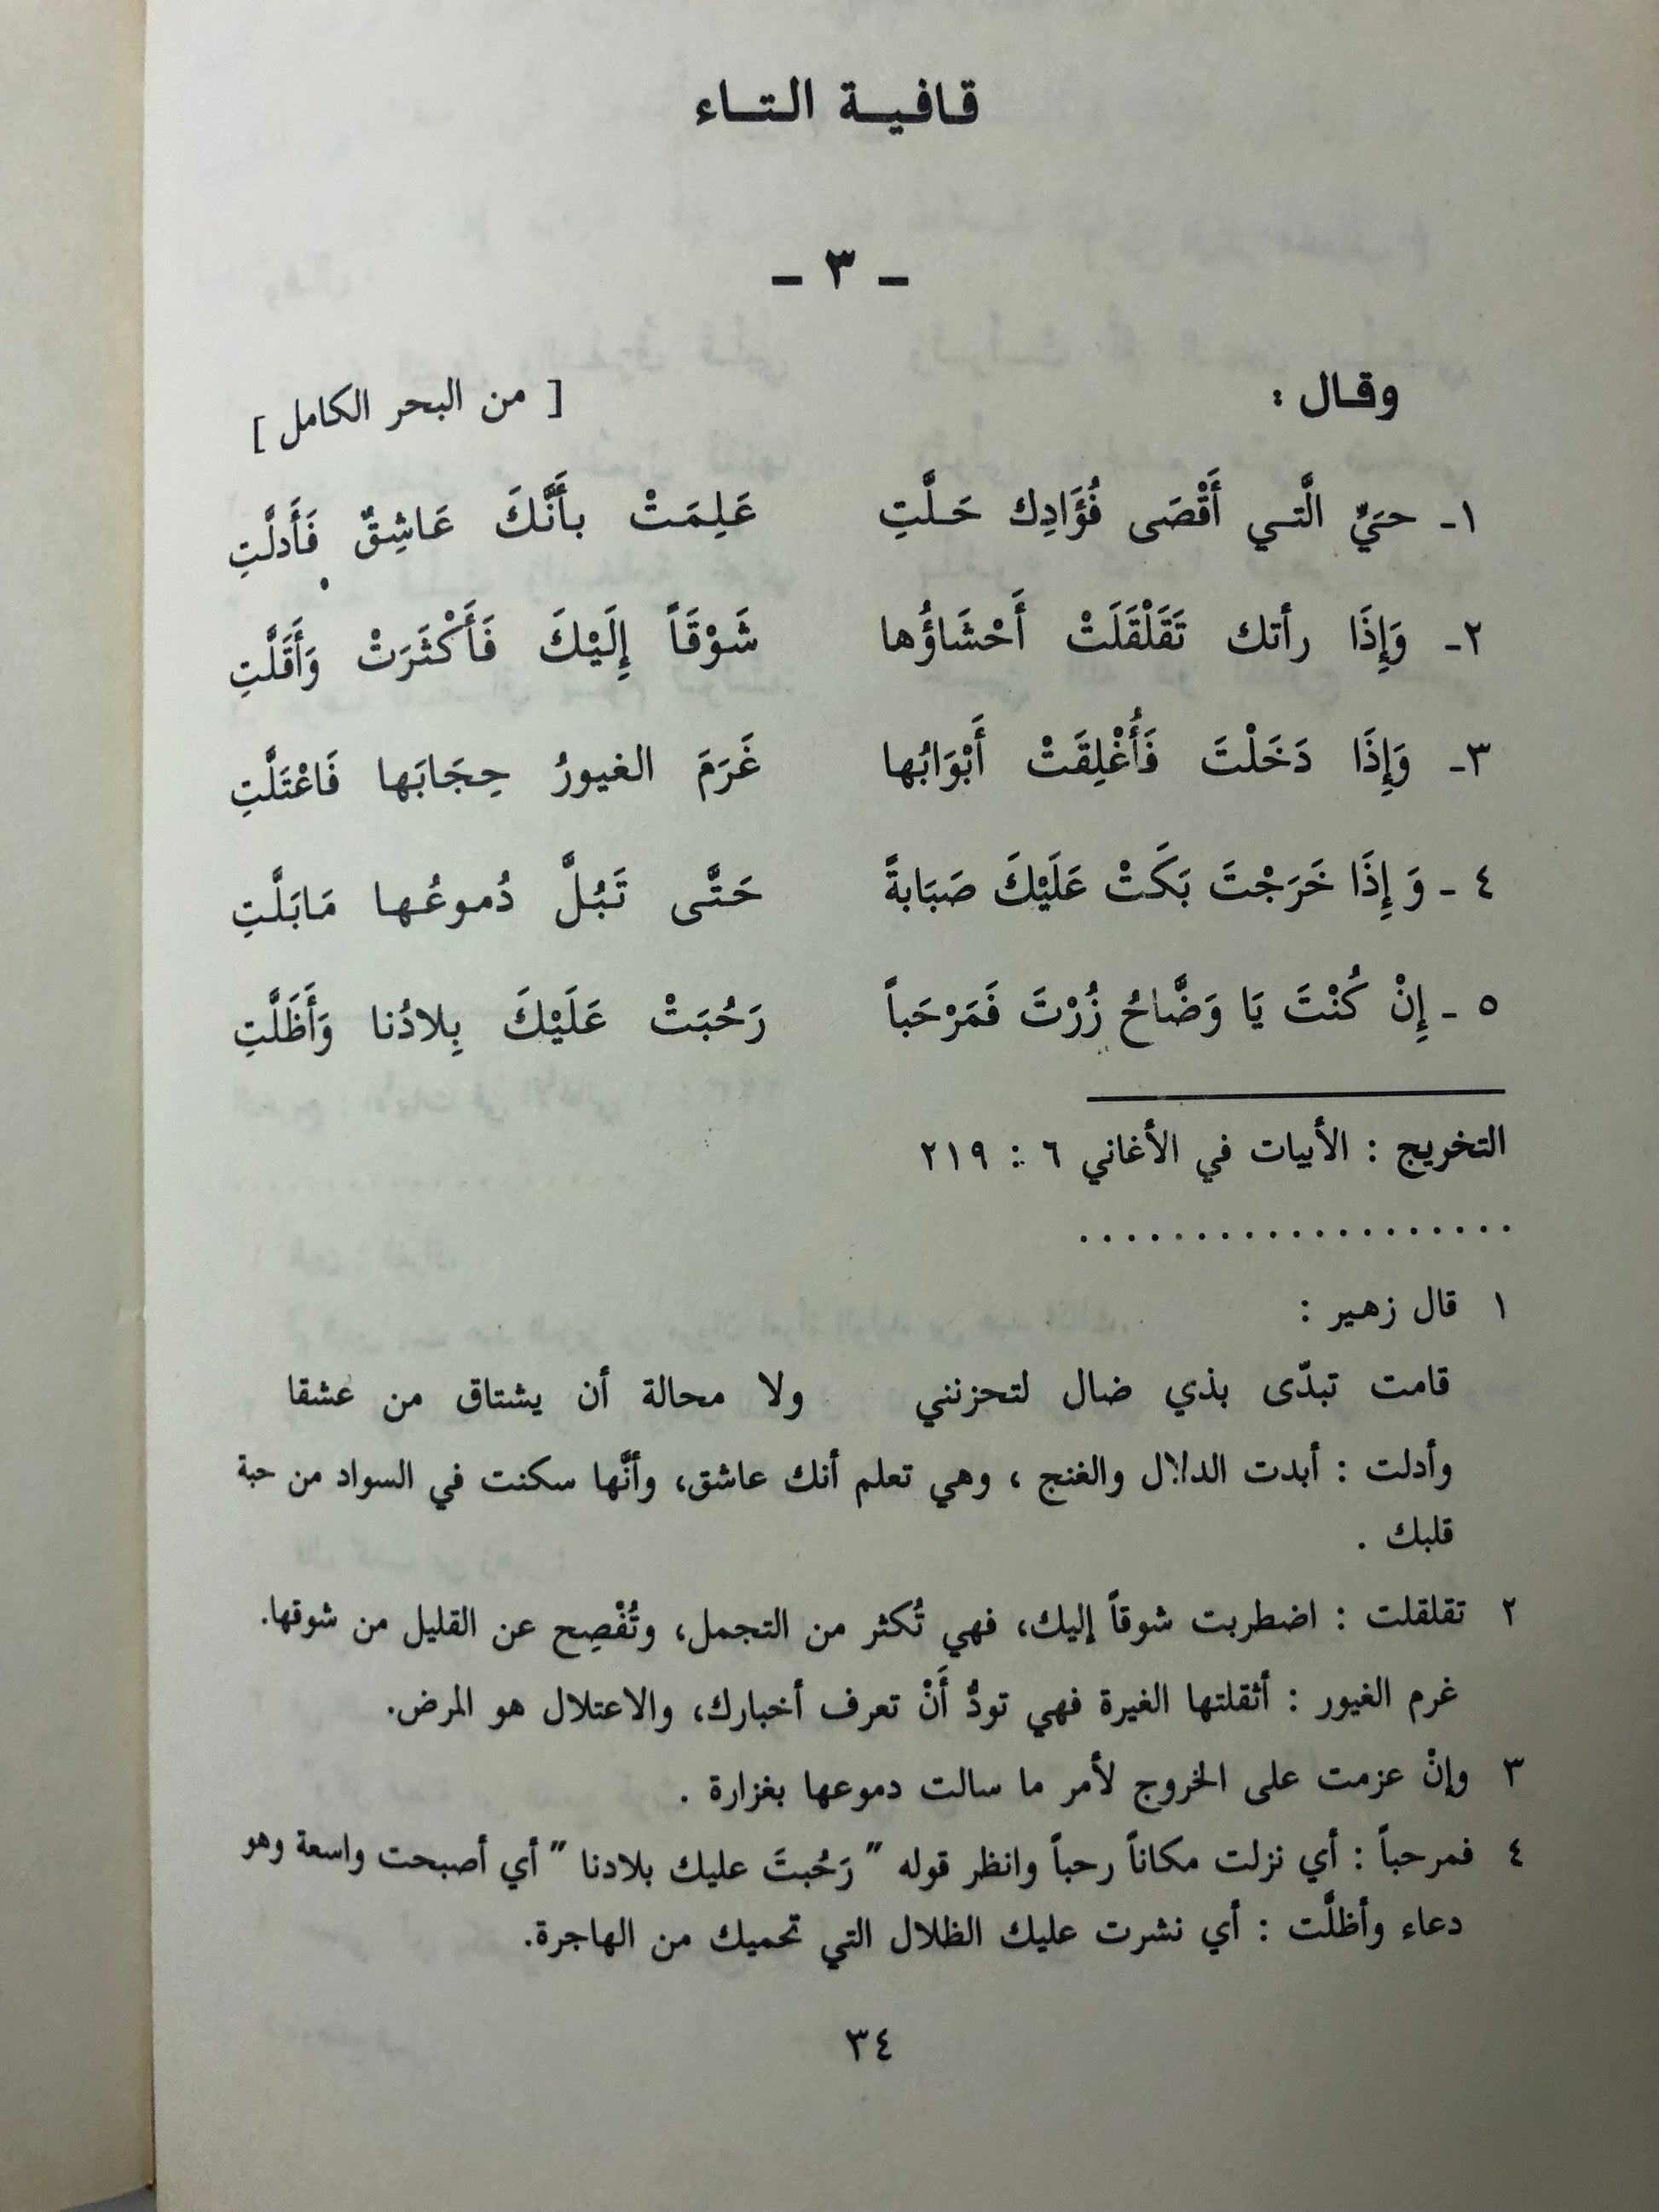 قافية التاء
- ٣ -
وقال : [ من البحر الكامل ]
١- حيَيٍّ الَّتي أَقْصَى فُؤَادِك حَلَّتِ عَلِمَتْ بأَنَّكَ عَاشِقٌ فَأَدلَّتِ
٢- وَإِذَا رأتك تَقَلْقَلَتْ أَحْشَاؤُها شَوْقَاً إِلَيْكَ فَأَكْثَرَتْ وَأَقَلَّتِ
٣- وَإِذَا دَخَلْتَ فَأُغْلِقَتْ أَبْوَابُها غَرَمَ الغيورُ حِجَابَها فَاعْتَلَّتِ
٤ - وَ إِذَا خَرَجْتَ بَكَتْ عَلَيْكَ صَبَابةً حَتَّى تَبُلَّ دُموعُها مَابَلَّتِ
٥ - إِنْ كُنْتَ يَا وَضَّاحُ زُرْتَ فَمَرْحَباً رَحُبَتْ عَلَيْكَ بِلادُنا وَأَظَلَّتِ
التخريج : الأبيات في الأغاني ٦ : ٢١٩
....................
١ قال زهير :
قامت تبدّى بذي ضال لتحزنني ولا محالة أن يشتاق من عشقا
وأدلت : أبدت الدلال والغنج ، وهي تعلم أنك عاشق، وأنَّها سكنت في السواد من حبة
قلبك .
٢ تقلقلت : اضطربت شوقاً إليك، فهي تُكثر من التجمل، وتُفْصِح عن القليل من شوقها.
غرم الغيور : أثقلتها الغيرة فهي تودُّ أَنْ تعرف أخبارك، والاعتلال هو المرض.
٣ وإنْ عزمت على الخروج لأمر ما سالت دموعها بغزارة .
٤ فمرحباً : أي نزلت مكاناً رحباً وانظر قوله " رَحُبتَ عليك بلادنا " أي أصبحت واسعة وهو
دعاء وأظلَّت : أي نشرت عليك الظلال التي تحميك من الهاجرة.
٣٤